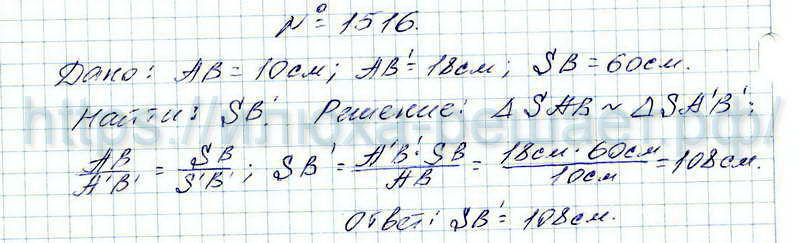 № 1516.
Дано: AB = 10см; AB' = 18см; SB = 60см.
Найти: SB'. Решение: Δ SAB ~ Δ SA'B';
AB/A'B' = SB/S'B'; SB' = A'B' · SB/AB = 18см · 60см/10см = 108см.
Ответ: SB' = 108см.